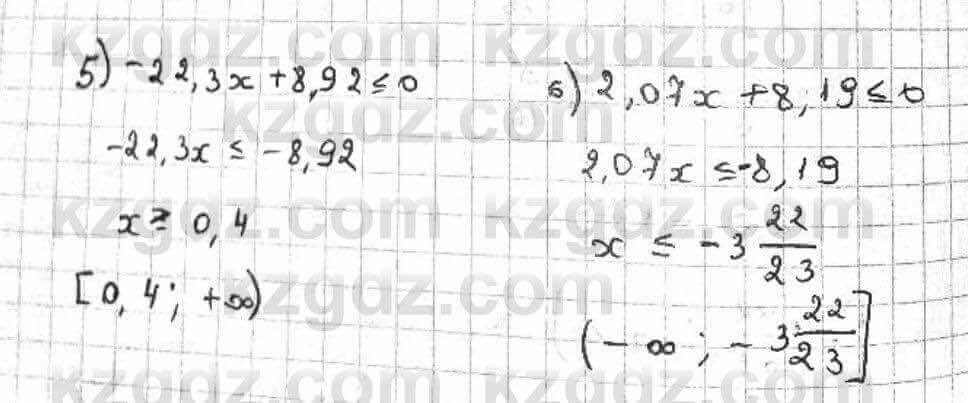 5) -22,3x + 8,92 ≤ 0
-22,3x ≤ -8,92
x ≥ 0,4
[0,4; +∞)
6) 2,07x + 8,19 ≤ 0
2,07x ≤ -8,19
x ≤ -3 22/23
(-∞; -3 22/23]
kzgdz.com
kzgdz.com
kzgdz.com
kzgdz.com
kzgdz.com
kzgdz.com
kzgdz.com